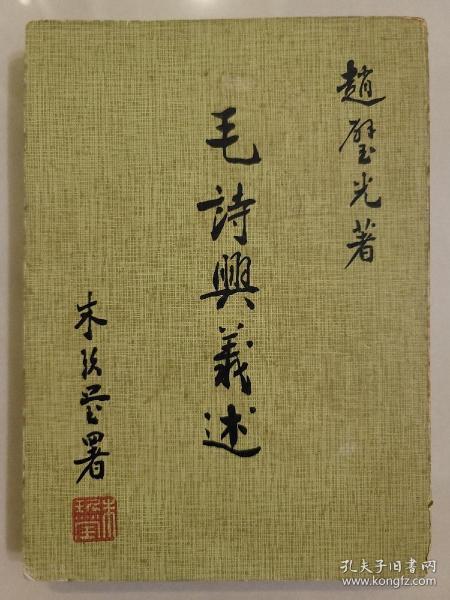 趙璧光著
毛詩興義述
朱玖瑩署
孔夫子旧书网
www.kongfz.com